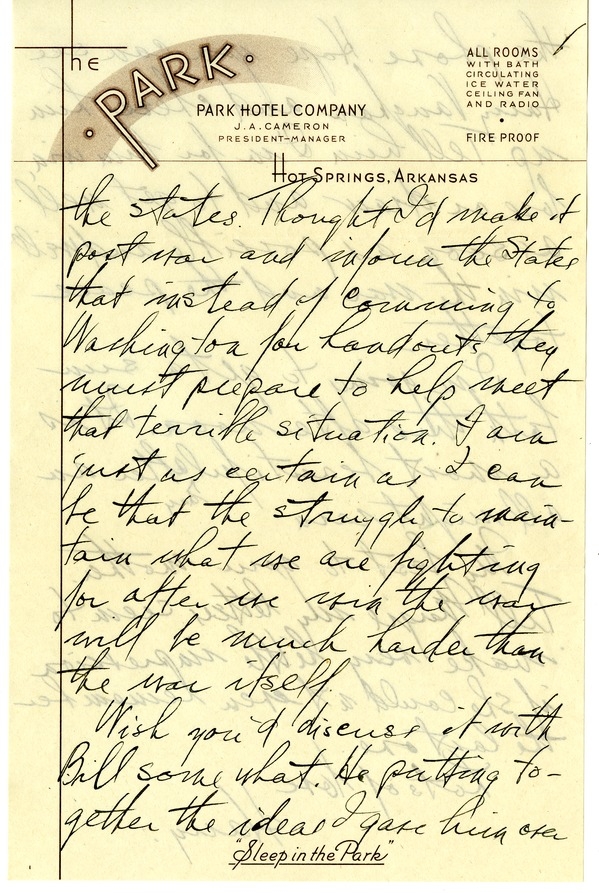 The
·PARK·
PARK HOTEL COMPANY
J. A. CAMERON
PRESIDENT-MANAGER
ALL ROOMS
WITH BATH
CIRCULATING
ICE WATER
CEILING FAN
AND RADIO
•
FIRE PROOF
HOT SPRINGS, ARKANSAS
the states. Thought I'd make it
post war and inform the States
that instead of comming to
Washington for handouts they
must prepare to help meet
that terrible situation. I am
just as certain as I can
be that the struggle to main-
tain what we are fighting
for after we win the war
will be much harder than
the war itself.
Wish you'd discuss it with
Bill some what. He putting to-
gether the ideas I gave him over
"Sleep in the Park"